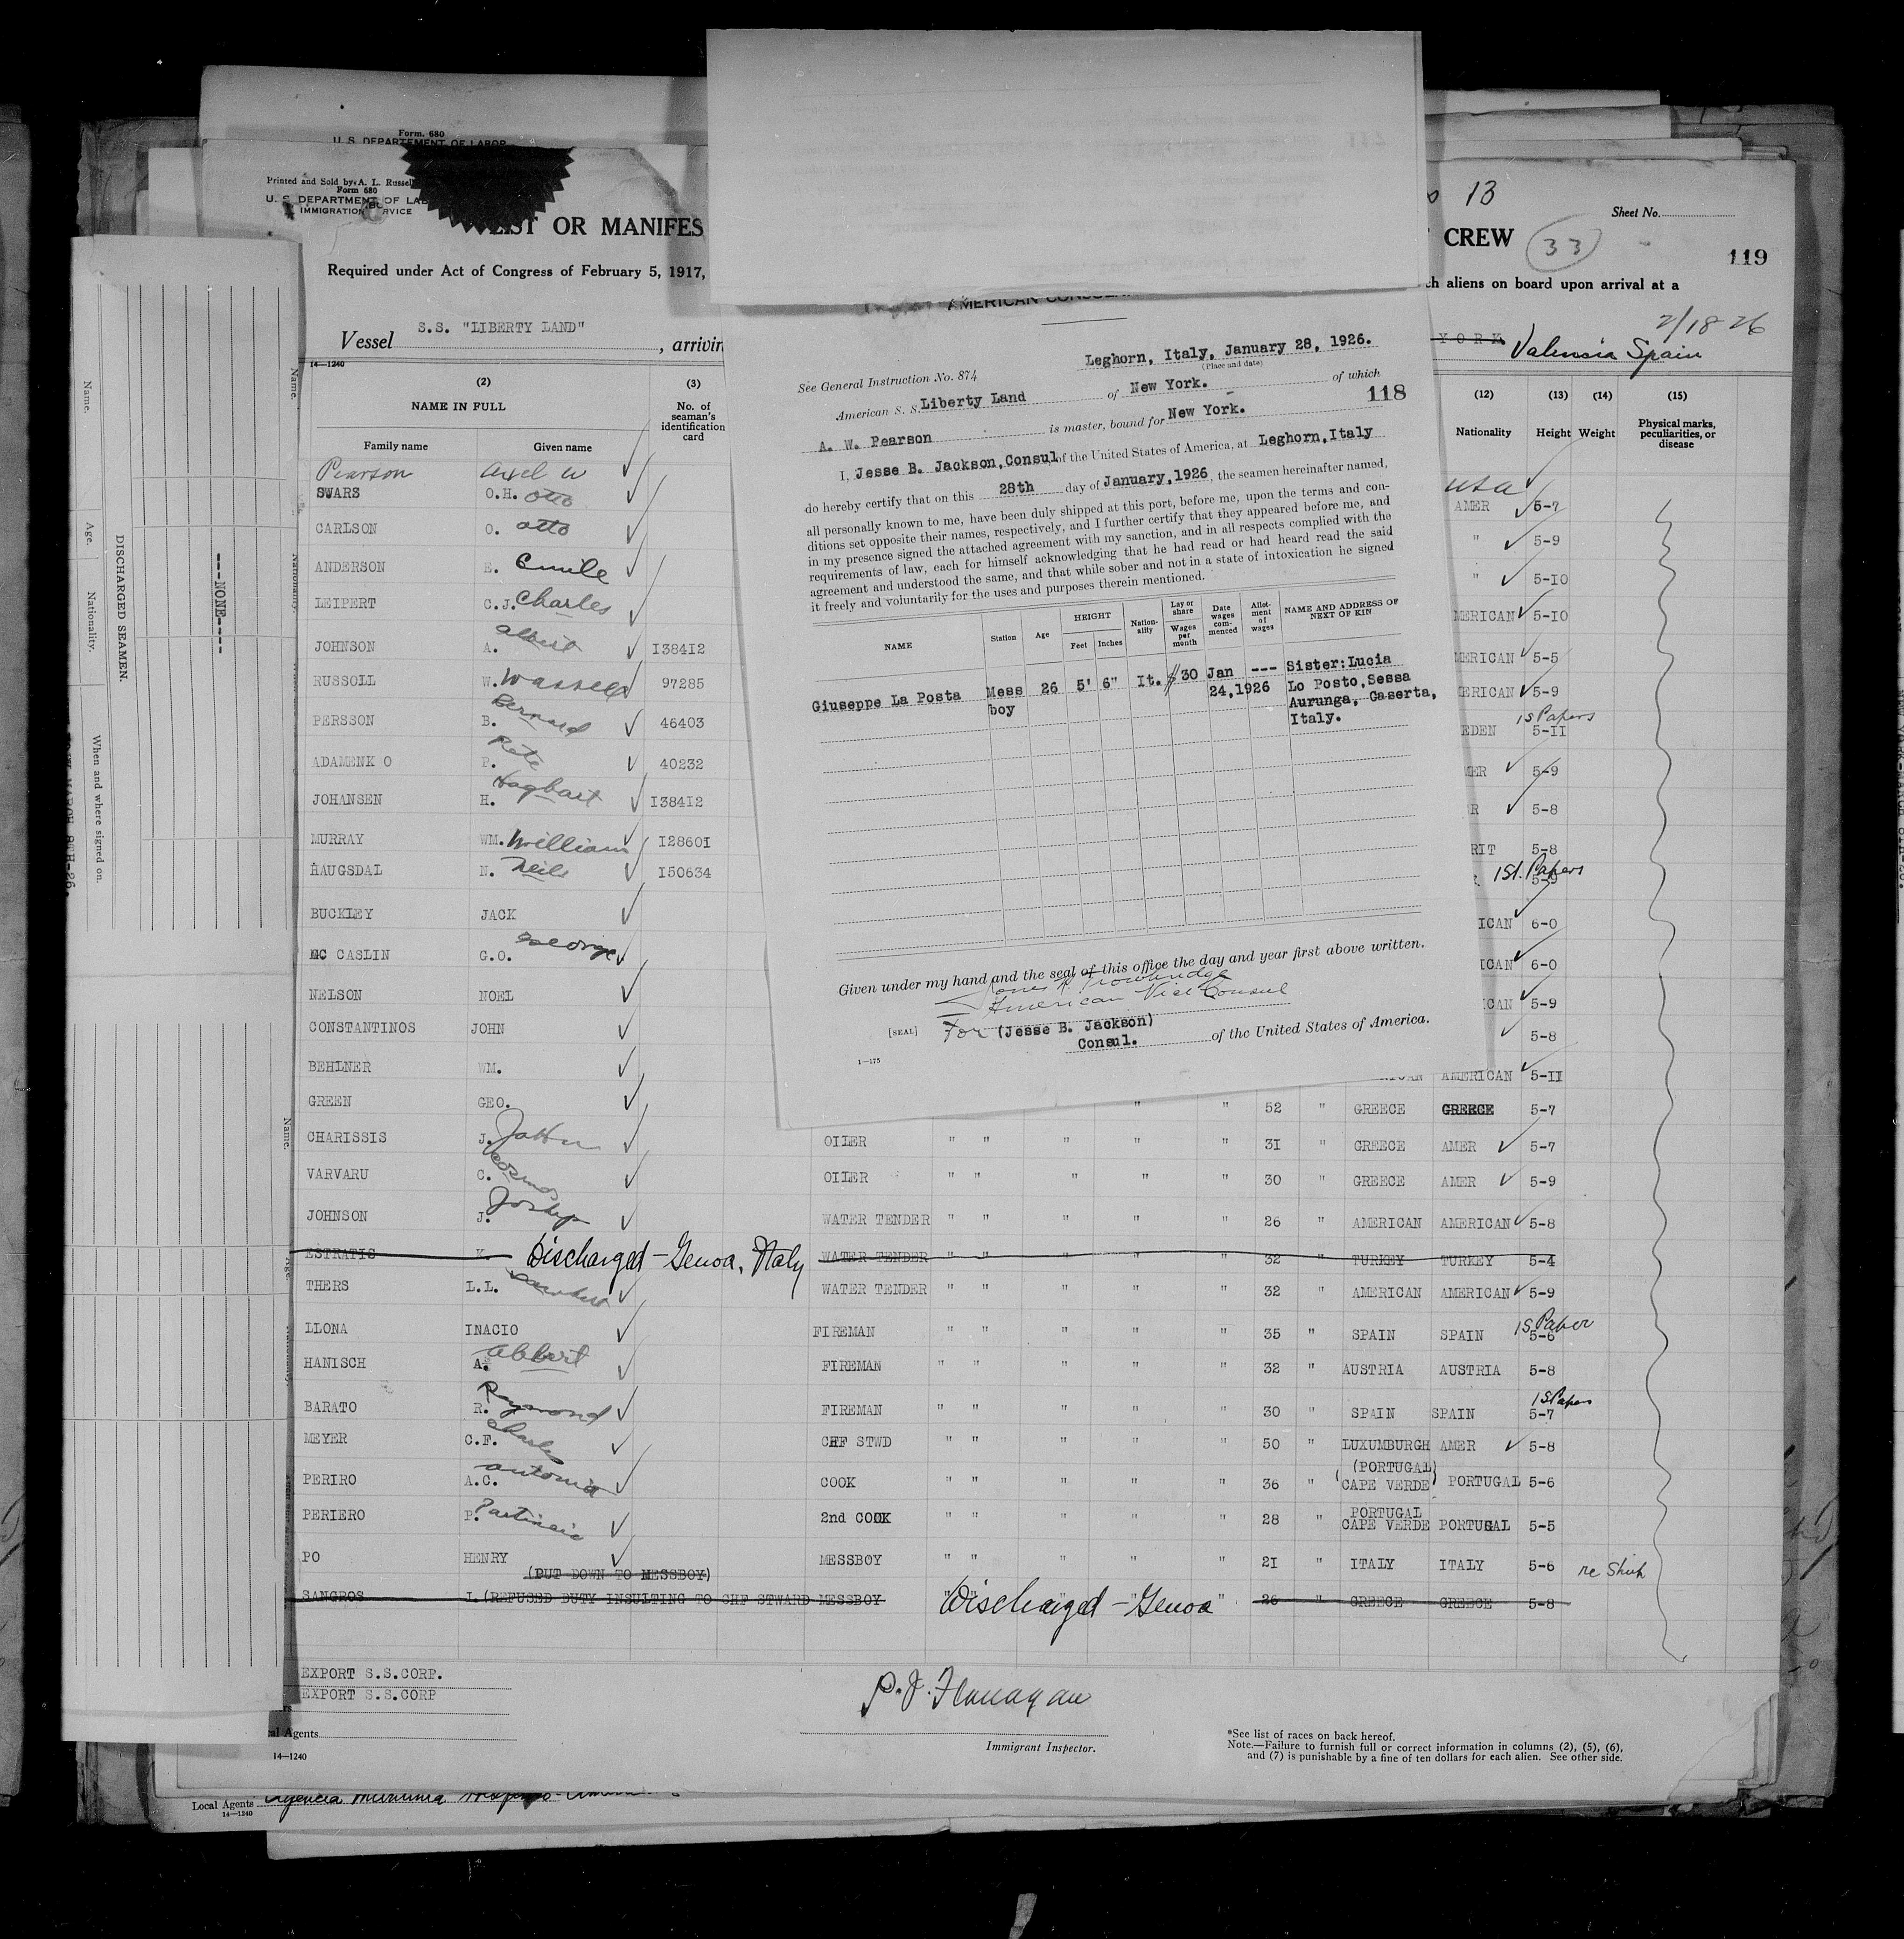 Form. 680
U. S. DEPARTEMENT OF LABOR
Printed and Sold by A. L. Russell
Form 680
U. S. DEPARTMENT OF LAB
IMMIGRATION SERVICE
LIST OR MANIFES
CREW
13
33
Sheet No.
119
Required under Act of Congress of February 5, 1917,
ch aliens on board upon arrival at a
2/18 26
Vessel S.S. "LIBERTY LAND", arrivin
YORK Valencia Spain
14—1240
(2) (3) (12) (13) (14) (15)
NAME IN FULL No. of seaman's identification card Nationality Height Weight Physical marks, peculiarities, or disease
Family name Given name
Pearson Axel W USA
SWARS O.H. Otto AMER 5-7
CARLSON O. Otto " 5-9
ANDERSON E. Emile " 5-10
LEIPERT C.J. Charles MERICAN 5-10
JOHNSON A. Albert 138412 MERICAN 5-5
RUSSOLL W. Wassell 97285 MERICAN 5-9
PERSSON B. Bernard 46403 EDEN 1s Papers 5-11
ADAMENK O P. Pete 40232 MER 5-9
JOHANSEN H. Hagbart 138412 R 5-8
MURRAY WM. William 128601 RIT 5-8
HAUGSDAL N. Neils 150634 1st. Papers 5-9
BUCKLEY JACK ICAN 6-0
MC CASLIN G.O. George ICAN 6-0
NELSON NOEL ICAN 5-9
CONSTANTINOS JOHN 5-8
BEHLNER WM. AMERICAN 5-11
GREEN GEO. " " 52 " GREECE GREECE 5-7
CHARISSIS J. John OILER " " " " " 31 " GREECE AMER 5-7
VARVARU C. Cosmos OILER " " " " " 30 " GREECE AMER 5-9
JOHNSON J. Joship WATER TENDER " " " " " 26 " AMERICAN AMERICAN 5-8
ESTRATIS K. Discharged - Genoa, Italy WATER TENDER " " " " " 32 " TURKEY TURKEY 5-4
THERS L.L. WATER TENDER " " " " " 32 " AMERICAN AMERICAN 5-9
LLONA INACIO FIREMAN " " " " " 35 " SPAIN SPAIN 1s Paper 5-6
HANISCH A. Albert FIREMAN " " " " " 32 " AUSTRIA AUSTRIA 5-8
BARATO R. Raymond FIREMAN " " " " " 30 " SPAIN SPAIN 1s Papers 5-7
MEYER C.F. Charles CHF STWD " " " " " 50 " LUXUMBURGH AMER 5-8
PERIRO A.C. Antonia COOK " " " " " 36 " (PORTUGAL) (CAPE VERDE) PORTUGAL 5-6
PERIERO P. 2nd COOK " " " " " 28 " PORTUGAL CAPE VERDE PORTUGAL 5-5
PO HENRY MESSBOY " " " " " 21 " ITALY ITALY 5-6
(PUT DOWN TO MESSBOY)
SANGROS I. (REFUSED DUTY INSULTING TO CHF STWARD MESSBOY Discharged - Genoa " 26 " GREECE GREECE 5-8
EXPORT S.S.CORP.
EXPORT S.S.CORP
al Agents
14—1240
P. J. Flanagan
Immigrant Inspector.
*See list of races on back hereof.
Note.—Failure to furnish full or correct information in columns (2), (5), (6),
and (7) is punishable by a fine of ten dollars for each alien. See other side.
Local Agents Agencia
14—1240
AMERICAN CONSULA
Leghorn, Italy, January 28, 1926.
(Place and date)
See General Instruction No. 874
American S. S. Liberty Land of New York. of which
118
A. W. Pearson is master, bound for New York.
I, Jesse B. Jackson, Consul of the United States of America, at Leghorn, Italy
do hereby certify that on this 28th day of January, 1926, the seamen hereinafter named,
all personally known to me, have been duly shipped at this port, before me, upon the terms and con-
ditions set opposite their names, respectively, and I further certify that they appeared before me, and
in my presence signed the attached agreement with my sanction, and in all respects complied with the
requirements of law, each for himself acknowledging that he had read or had heard read the said
agreement and understood the same, and that while sober and not in a state of intoxication he signed
it freely and voluntarily for the uses and purposes therein mentioned.
NAME Station Age HEIGHT Feet Inches Nation-ality Lay or share Wages per month Date wages com-menced Allot-ment of wages NAME AND ADDRESS OF NEXT OF KIN
Giuseppe La Posta Mess boy 26 5' 6" It. $30 Jan 24,1926 --- Sister:Lucia
Lo Posto,Sessa
Aurunga, Caserta,
Italy.
Given under my hand and the seal of this office the day and year first above written.
American Vice Consul
[SEAL] For (Jesse B. Jackson)
Consul. of the United States of America.
1—175
DISCHARGED SEAMEN.
Name. Age. Nationality. When and where signed on.
---NONE---
Name.
Name.
Age.